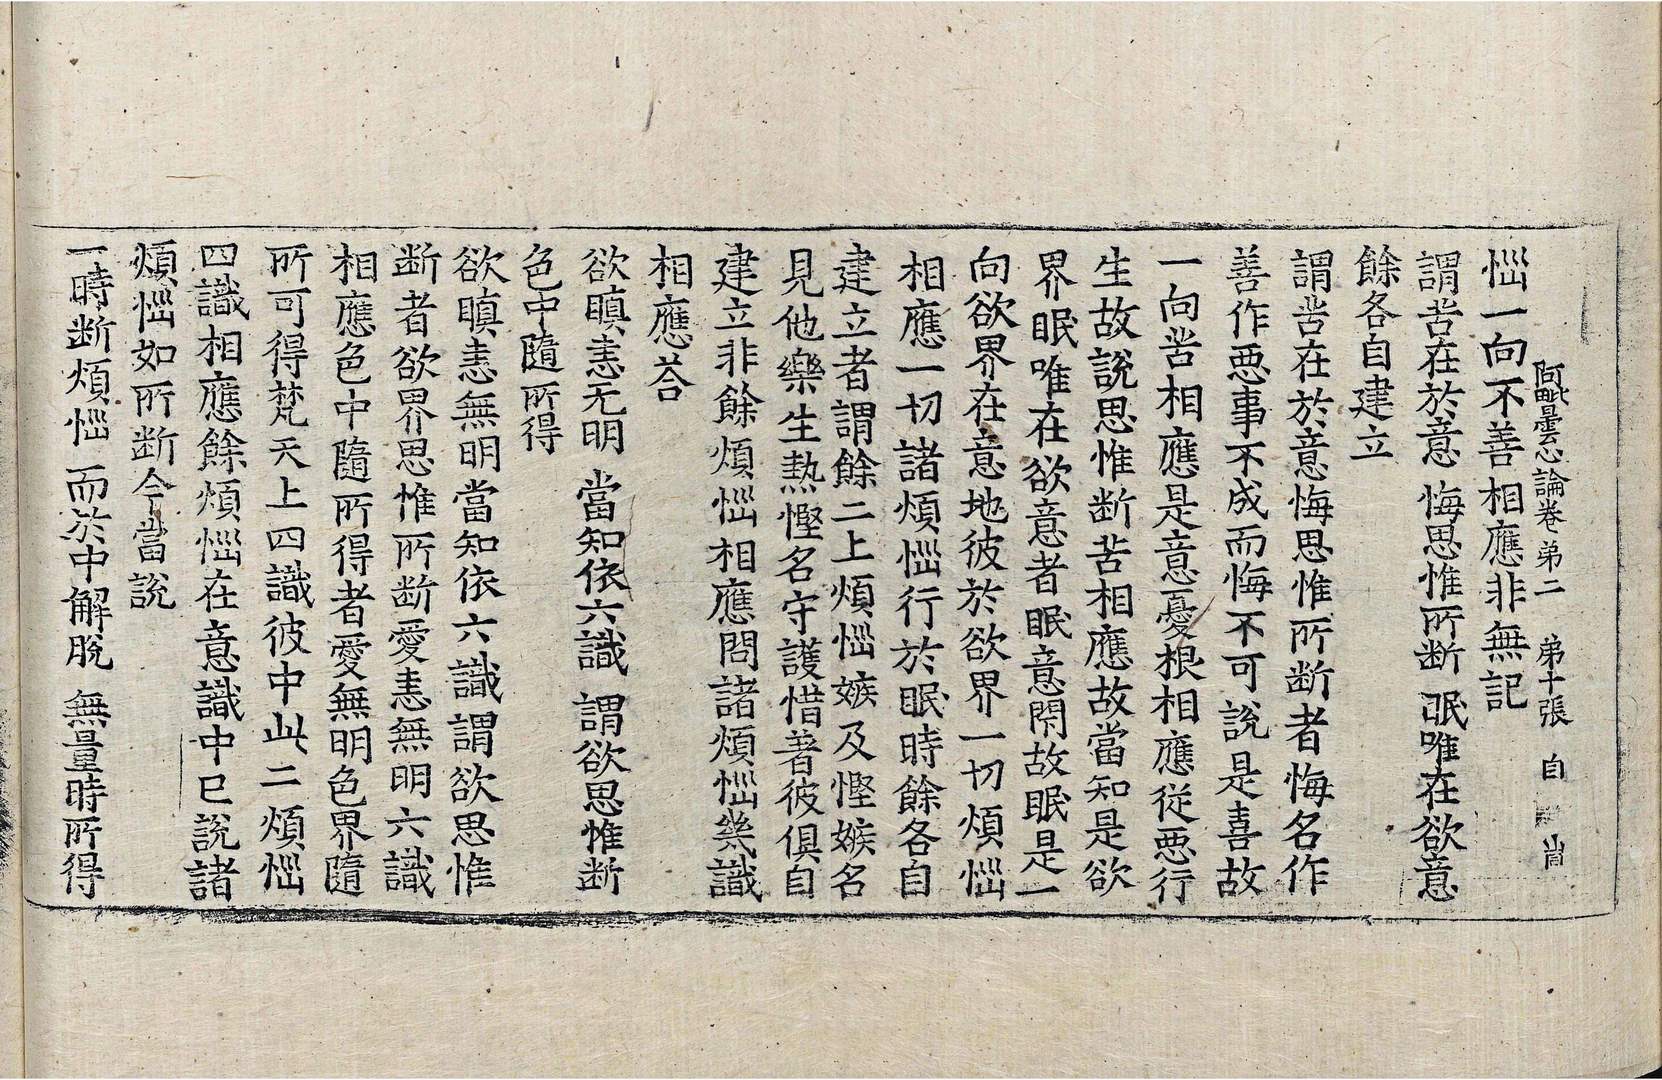 阿毗曇心論卷弟二　弟十張　自
惱一向不善相應非無記
謂苦在於意　悔思惟所断　眠唯在欲意
餘各自建立
謂苦在於意悔思惟所断者悔名作
善作悪事不成而悔不可說是喜故
一向苦相應是意憂根相應従悪行
生故說思惟断苦相應故當知是欲
界眠唯在欲意者眠意閇故眠是一
向欲界在意地彼於欲界一切煩惱
相應一切諸煩惱行於眠時餘各自
建立者謂餘二上煩惱嫉及慳嫉名
見他樂生熱慳名守護惜著彼俱自
建立非餘煩惱相應問諸煩惱幾識
相應荅
欲瞋恚无明　當知依六識　謂欲思惟断
色中隨所得
欲瞋恚無明當知依六識謂欲思惟
断者欲界思惟所断愛恚無明六識
相應色中隨所得者愛無明色界隨
所可得梵天上四識彼中此二煩惱
四識相應餘煩惱在意識中已說諸
煩惱如所断今當說
一時断煩惱　而於中解脫　無量時所得